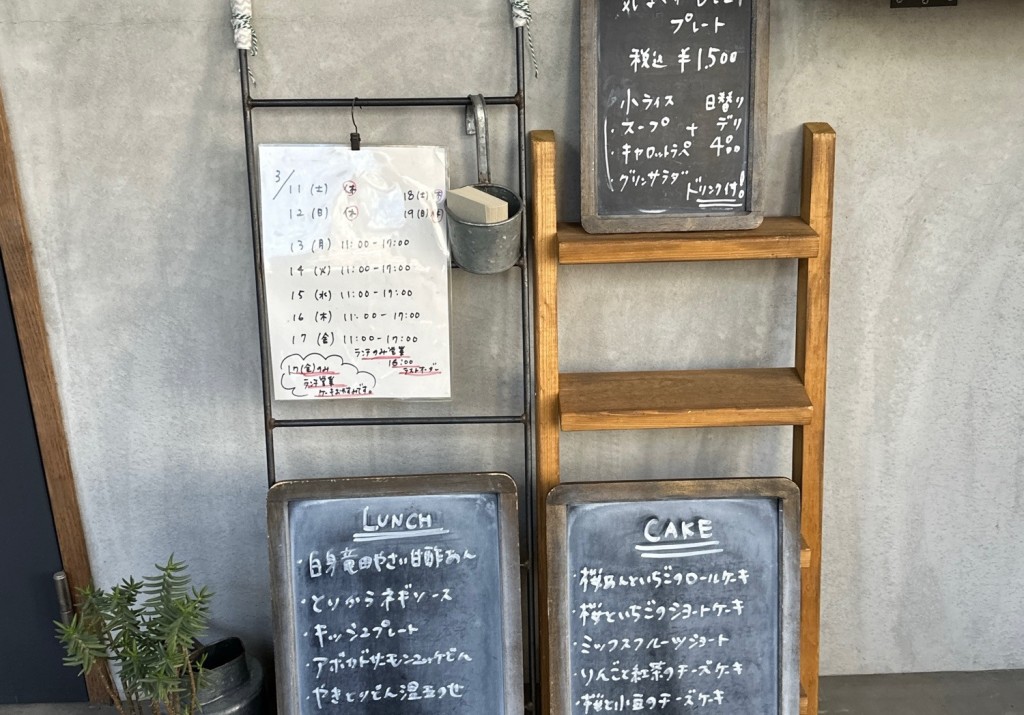 3/11 (土) 休
12 (日) 休
18 (土)
19 (日)
13 (月) 11:00-17:00
14 (火) 11:00-17:00
15 (水) 11:00-17:00
16 (木) 11:00-17:00
17 (金) 11:00-17:00
ランチのみ営業
15:00
ラストオーダー
17(金)のみ
ランチ営業
ケーキお休みです。
プレート
税込 ¥1,500
・小ライス
・スープ
・キャロットラペ
・グリンサラダ
日替り
+ デリ
ドリンク付!
LUNCH
・白身竜田やさい甘酢あん
・とりからネギソース
・キッシュプレート
・アボカドサーモンユッケどん
・やきとりどん温玉のせ
CAKE
・桜あんといちごのロールケーキ
・桜といちごのショートケーキ
・ミックスフルーツショート
・りんごと紅茶のチーズケーキ
・桜と小豆のチーズケーキ